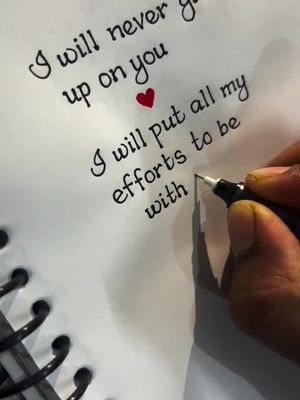 I will never
up on you
I will put all my
efforts to be
with